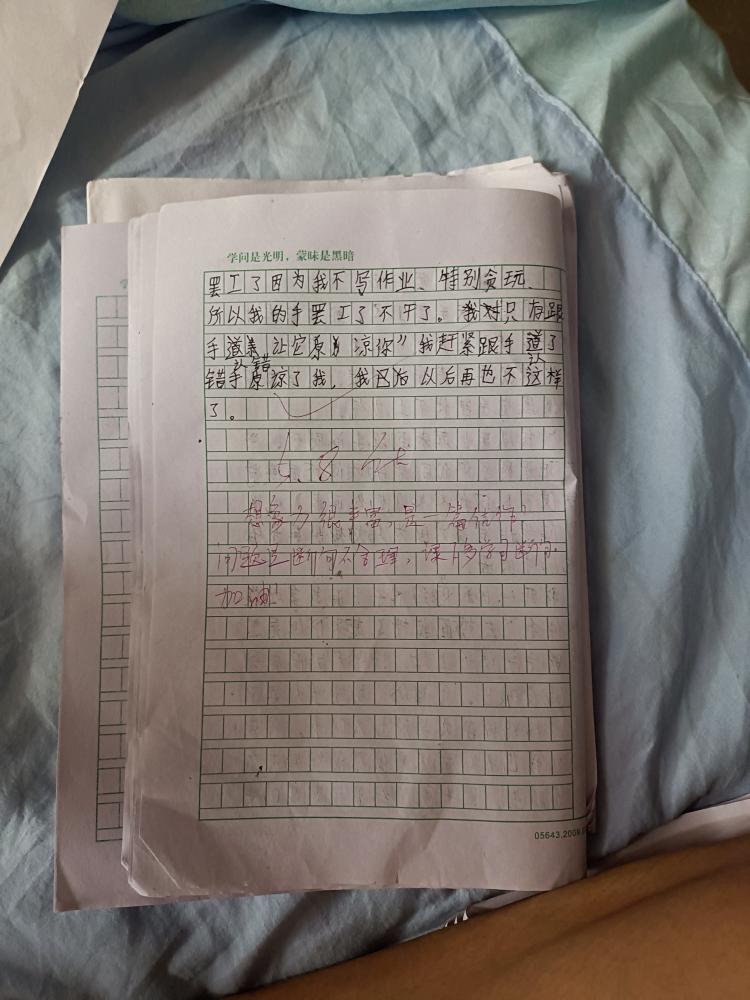 学问是光明，蒙昧是黑暗
罢工了因为我不写作业、特别贪玩、
所以我的手罢工了不干了。我对只有跟
手道 让它原 凉你”我赶紧跟手道了
认错 认
错手原凉了我，我 后以后再也不这样
了。
5.8分
想象力很丰富，是一篇佳作
问题是断句不合理，课下多学习断句。
加油！
05643.2009.